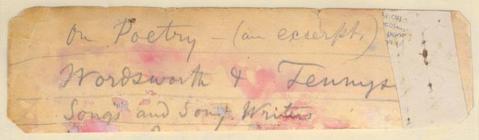 On Poetry – (an excerpt,)
Wordsworth & Tennys
Songs and Song-Writers